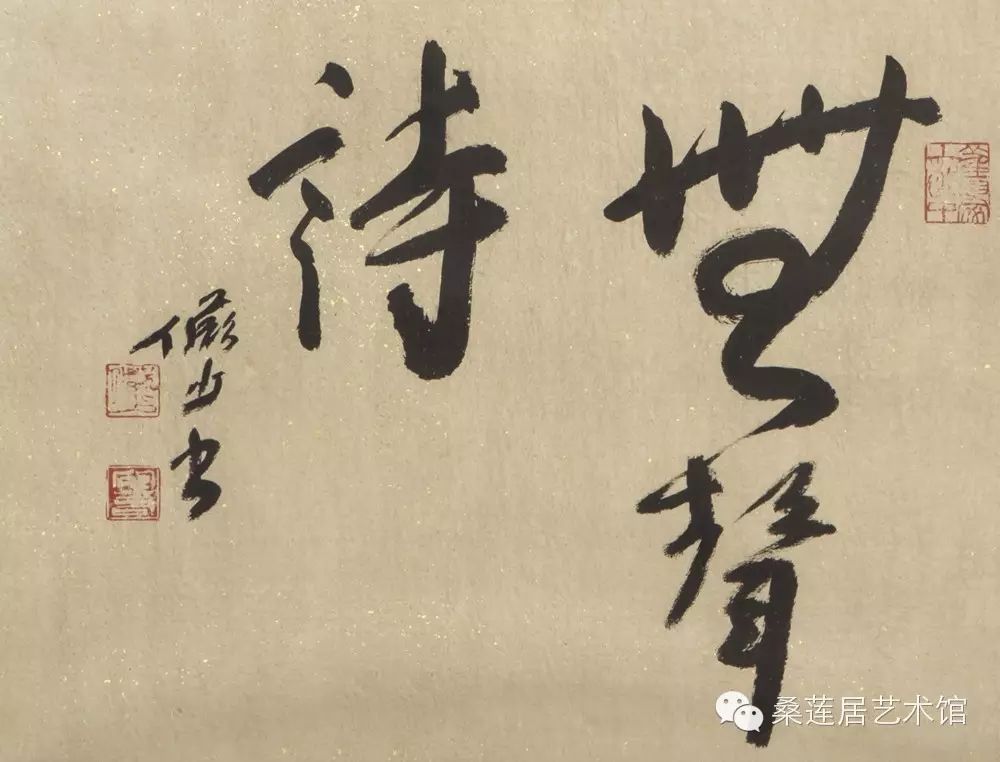 無聲
詩
儼少書
桑莲居艺术馆